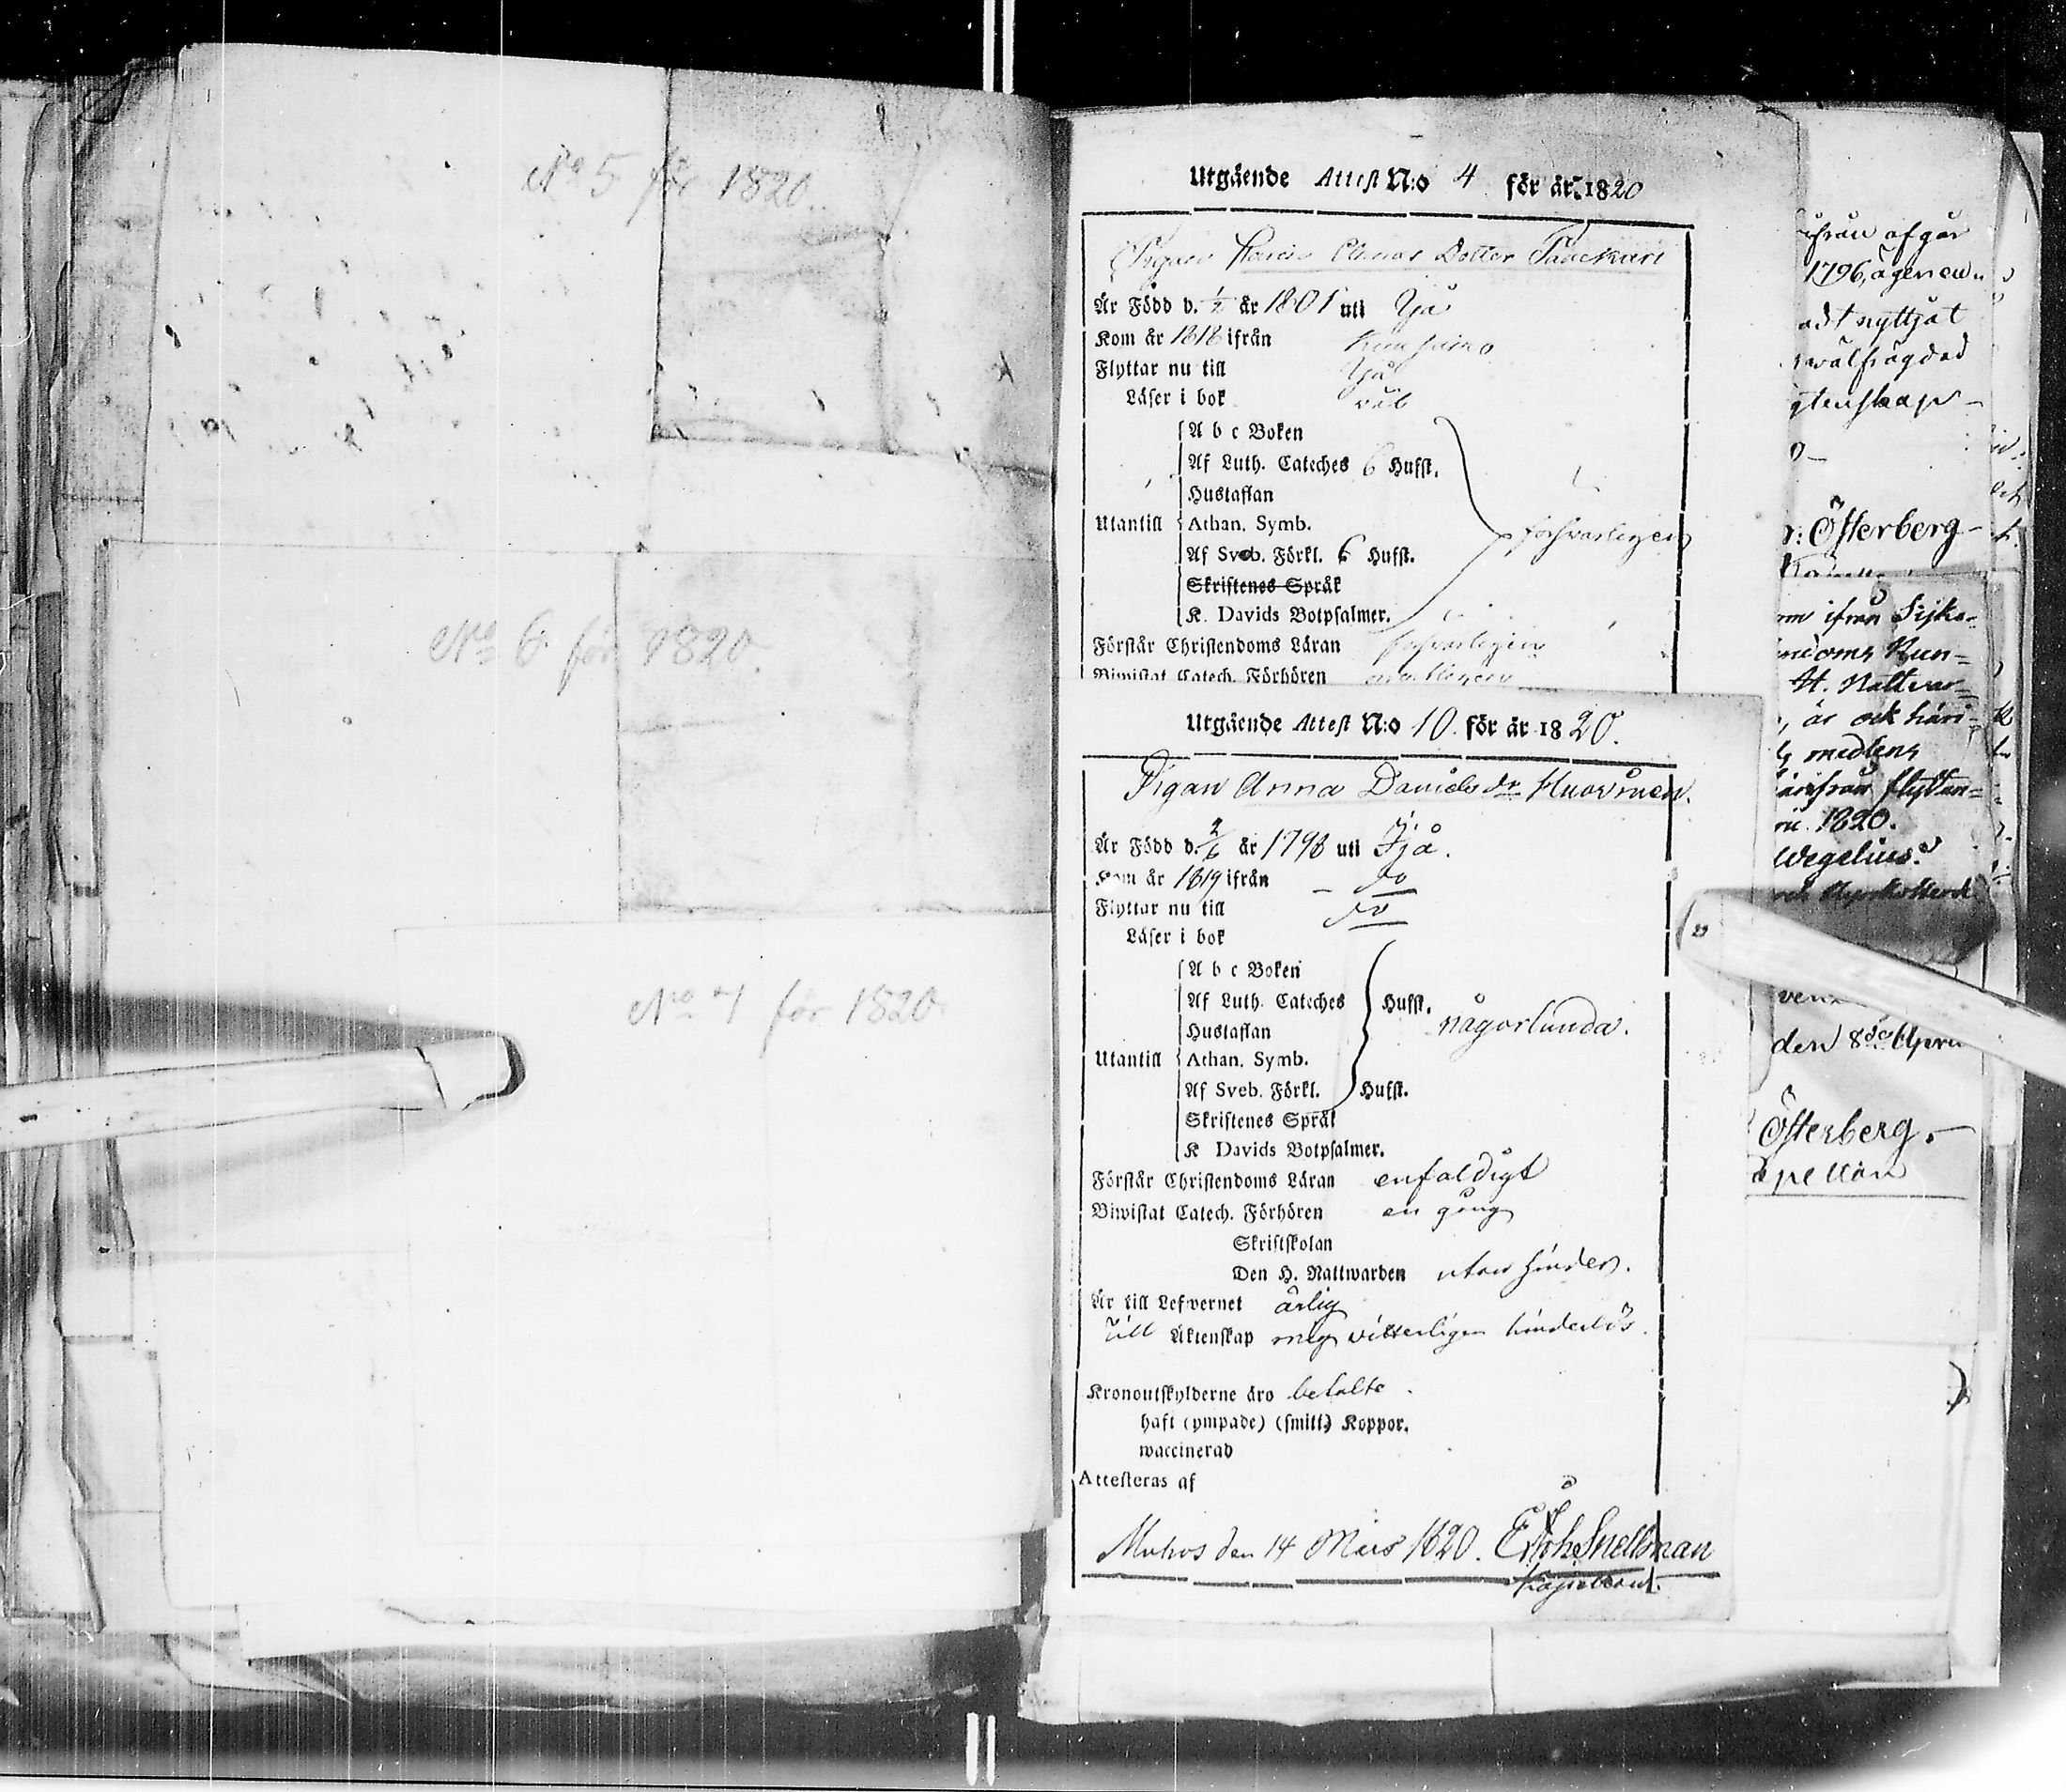 No 5 för 1820.
No 6 för 1820.
No 7 för 1820.
Utgående Attest N:o 4 för år 1820
Pigan Dotter
Är Född d. 1/2 år 1801 uti Ijå
Kom år 1818 ifrån
Flyttar nu till Ijå
Läser i bok väl
A b c Boken
Af Luth. Cateches 6 Hufst.
Hustaflan
Utantill Athan. Symb. försvarligen
Af Sveb. Förkl. 6 Hufst.
Skriftenes Språk
K. Davids Botpsalmer.
Förstår Christendoms Läran försvarligen
Biwistat Catech. Förhören
Utgående Attest N:o 10. för år 1820.
Pigan Anna Danielsdr Huovinen.
Är Född d. 2/6 år 1798 uti Ijå.
Kom år 1819 ifrån – do
Flyttar nu till do
Läser i bok
A b c Boken
Af Luth. Cateches Hufst.
Hustaflan någorlunda.
Utantill Athan. Symb.
Af Sveb. Förkl. Hufst.
Skriftenes Språk
K Davids Botpsalmer.
Förstår Christendoms Läran enfaldigt
Biwistat Catech. Förhören en gång
Skriftskolan
Den H. Nattwarden utan hinder.
Är till Lefwernet ärlig
till Äktenskap mig vitterligen hinderlös.
Kronoutskylderne äro betalte.
haft (ympade) (smitt) Koppor.
waccinerad
Attesteras af
Muhos den 14 Mars 1820. Er Joh Snellman
Kapellan.
ifrån afgår
1796, ägen en
nyttjat
välfrägdad
gtenskap –
r: Österberg –
om ifrån Sijka-
ndoms Kun=
H. Nattvar=
, är ock häri-
medlens
härifrån flyttan=
1820.
Wegelius.
den 8de April
Österberg. –
apellan